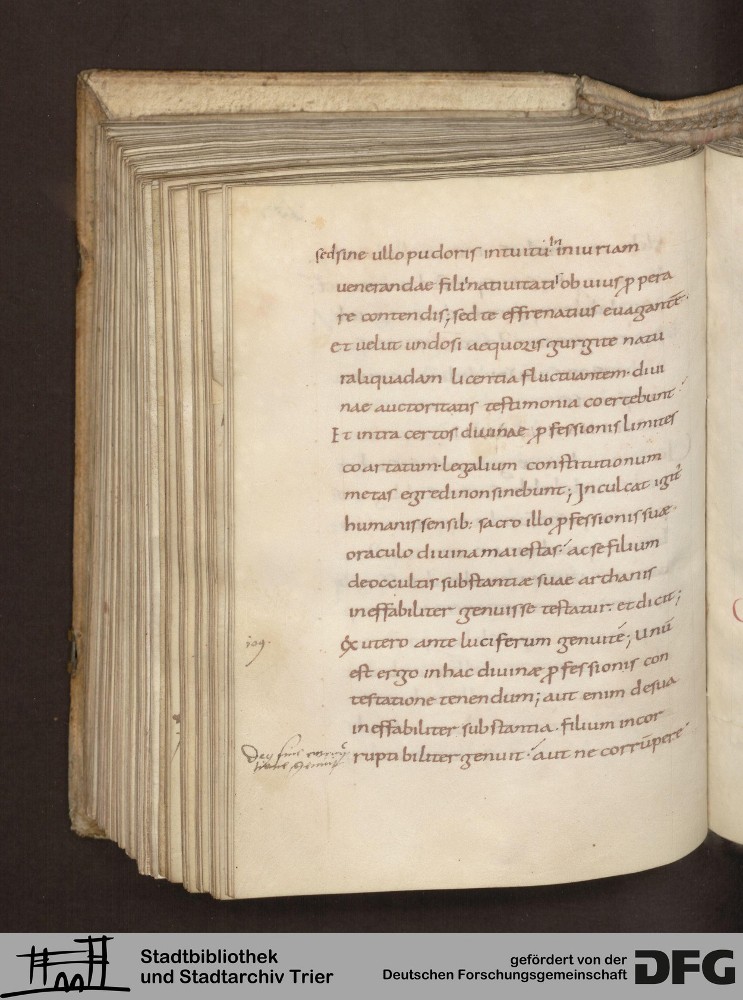 sedsine ullo pudoris intuitū in iniuriam
uenerandae fili natiuitati obuius ꝓpera
re contendis; sed te effrenatius euagantē.
et uelut undosi aequoris gurgite natu
raliquadam licentia fluctuantem. diui
nae auctoritatis testimonia coertebunt
Et intra certos diuinae ꝓfessionis limites
coartatum. legalium constitutionum
metas egredinonsinebunt; Inculcat igit̄
humanis sensib: sacro illo ꝓfessionis suae
oraculo diuina maiestas. ac se filium
deoccultis substantiæ suae archanis
ineffabiliter genuisse testatur. et dicit;
Ex utero ante luciferum genuitē; Unū
est ergo in hac diuinæ ꝓfessionis con
testatione tenendum; aut enim desua
ineffabiliter substantia. filium incor
ruptibiliter genuit. aut ne corrūpere
109.
Stadtbibliothek
und Stadtarchiv Trier
gefördert von der
Deutschen Forschungsgemeinschaft
DFG